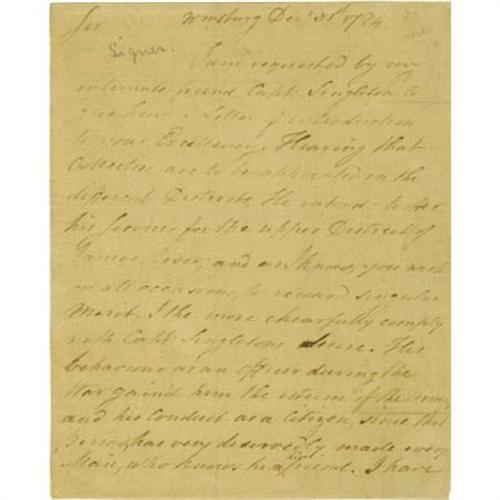 Sir Wmsburg Decr 31st 1784
Signer.
I am requested by my
intimate friend Capt Singleton to
give him a Letter of introduction
to your Excellency. Hearing that
Collectors are to be appointed in the
different Districts, he intends to offer
his services for the upper District of
James River, and as I know, you wish
on all occasions, to reward singular
Merit, I the more chearfully comply
with Capt Singletons desire. His
behaviour as an officer during the
War gain'd him the esteem of the army,
and his Conduct as a Citizen, since that
Period, has very deservedly made every
Man, who knows him, his friend. I have